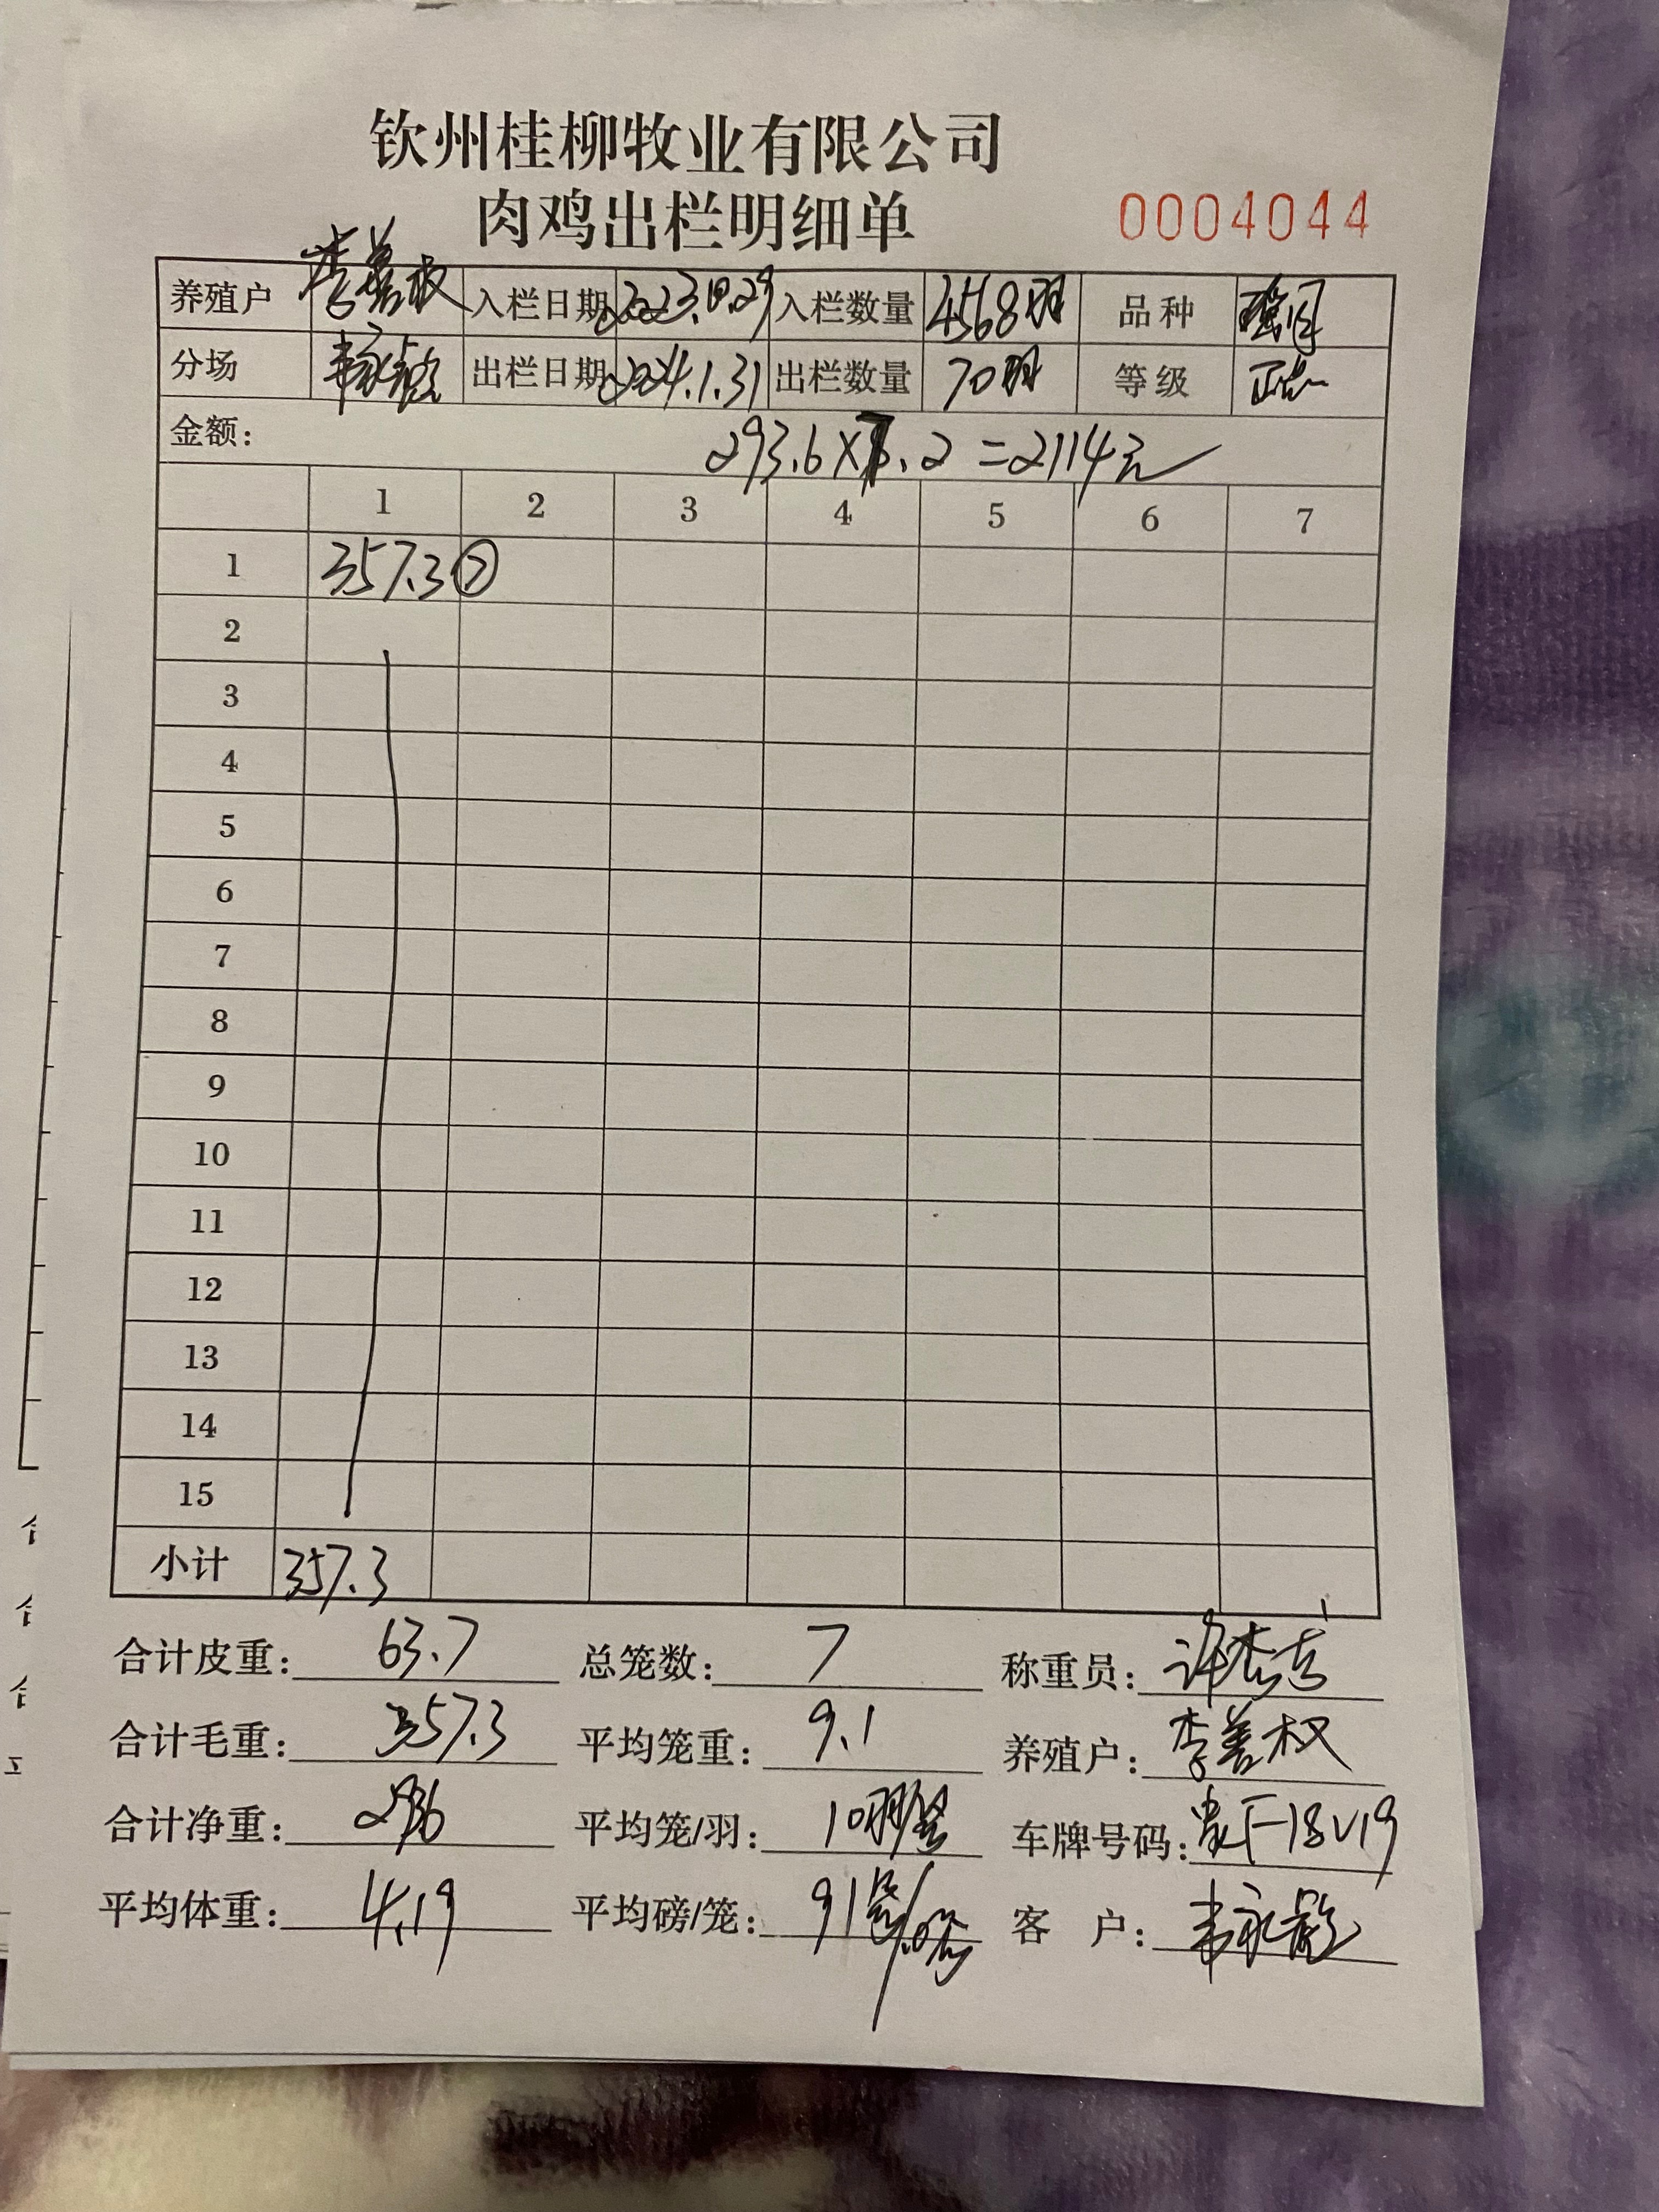 钦州桂柳牧业有限公司
肉鸡出栏明细单 0004044
养殖户 李善权 入栏日期 2023.10.29 入栏数量 4568羽 品种
分场 出栏日期 2024.1.31 出栏数量 70羽 等级
金额: 293.6×7.2=2114元
1 2 3 4 5 6 7
1 357.3 ⑦
2
3
4
5
6
7
8
9
10
11
12
13
14
15
小计 357.3
合计皮重: 63.7 总笼数: 7 称重员:
合计毛重: 357.3 平均笼重: 9.1 养殖户: 李善权
合计净重: 平均笼/羽: 10羽/笼 车牌号码:
平均体重: 4.19 平均磅/笼: 客户: